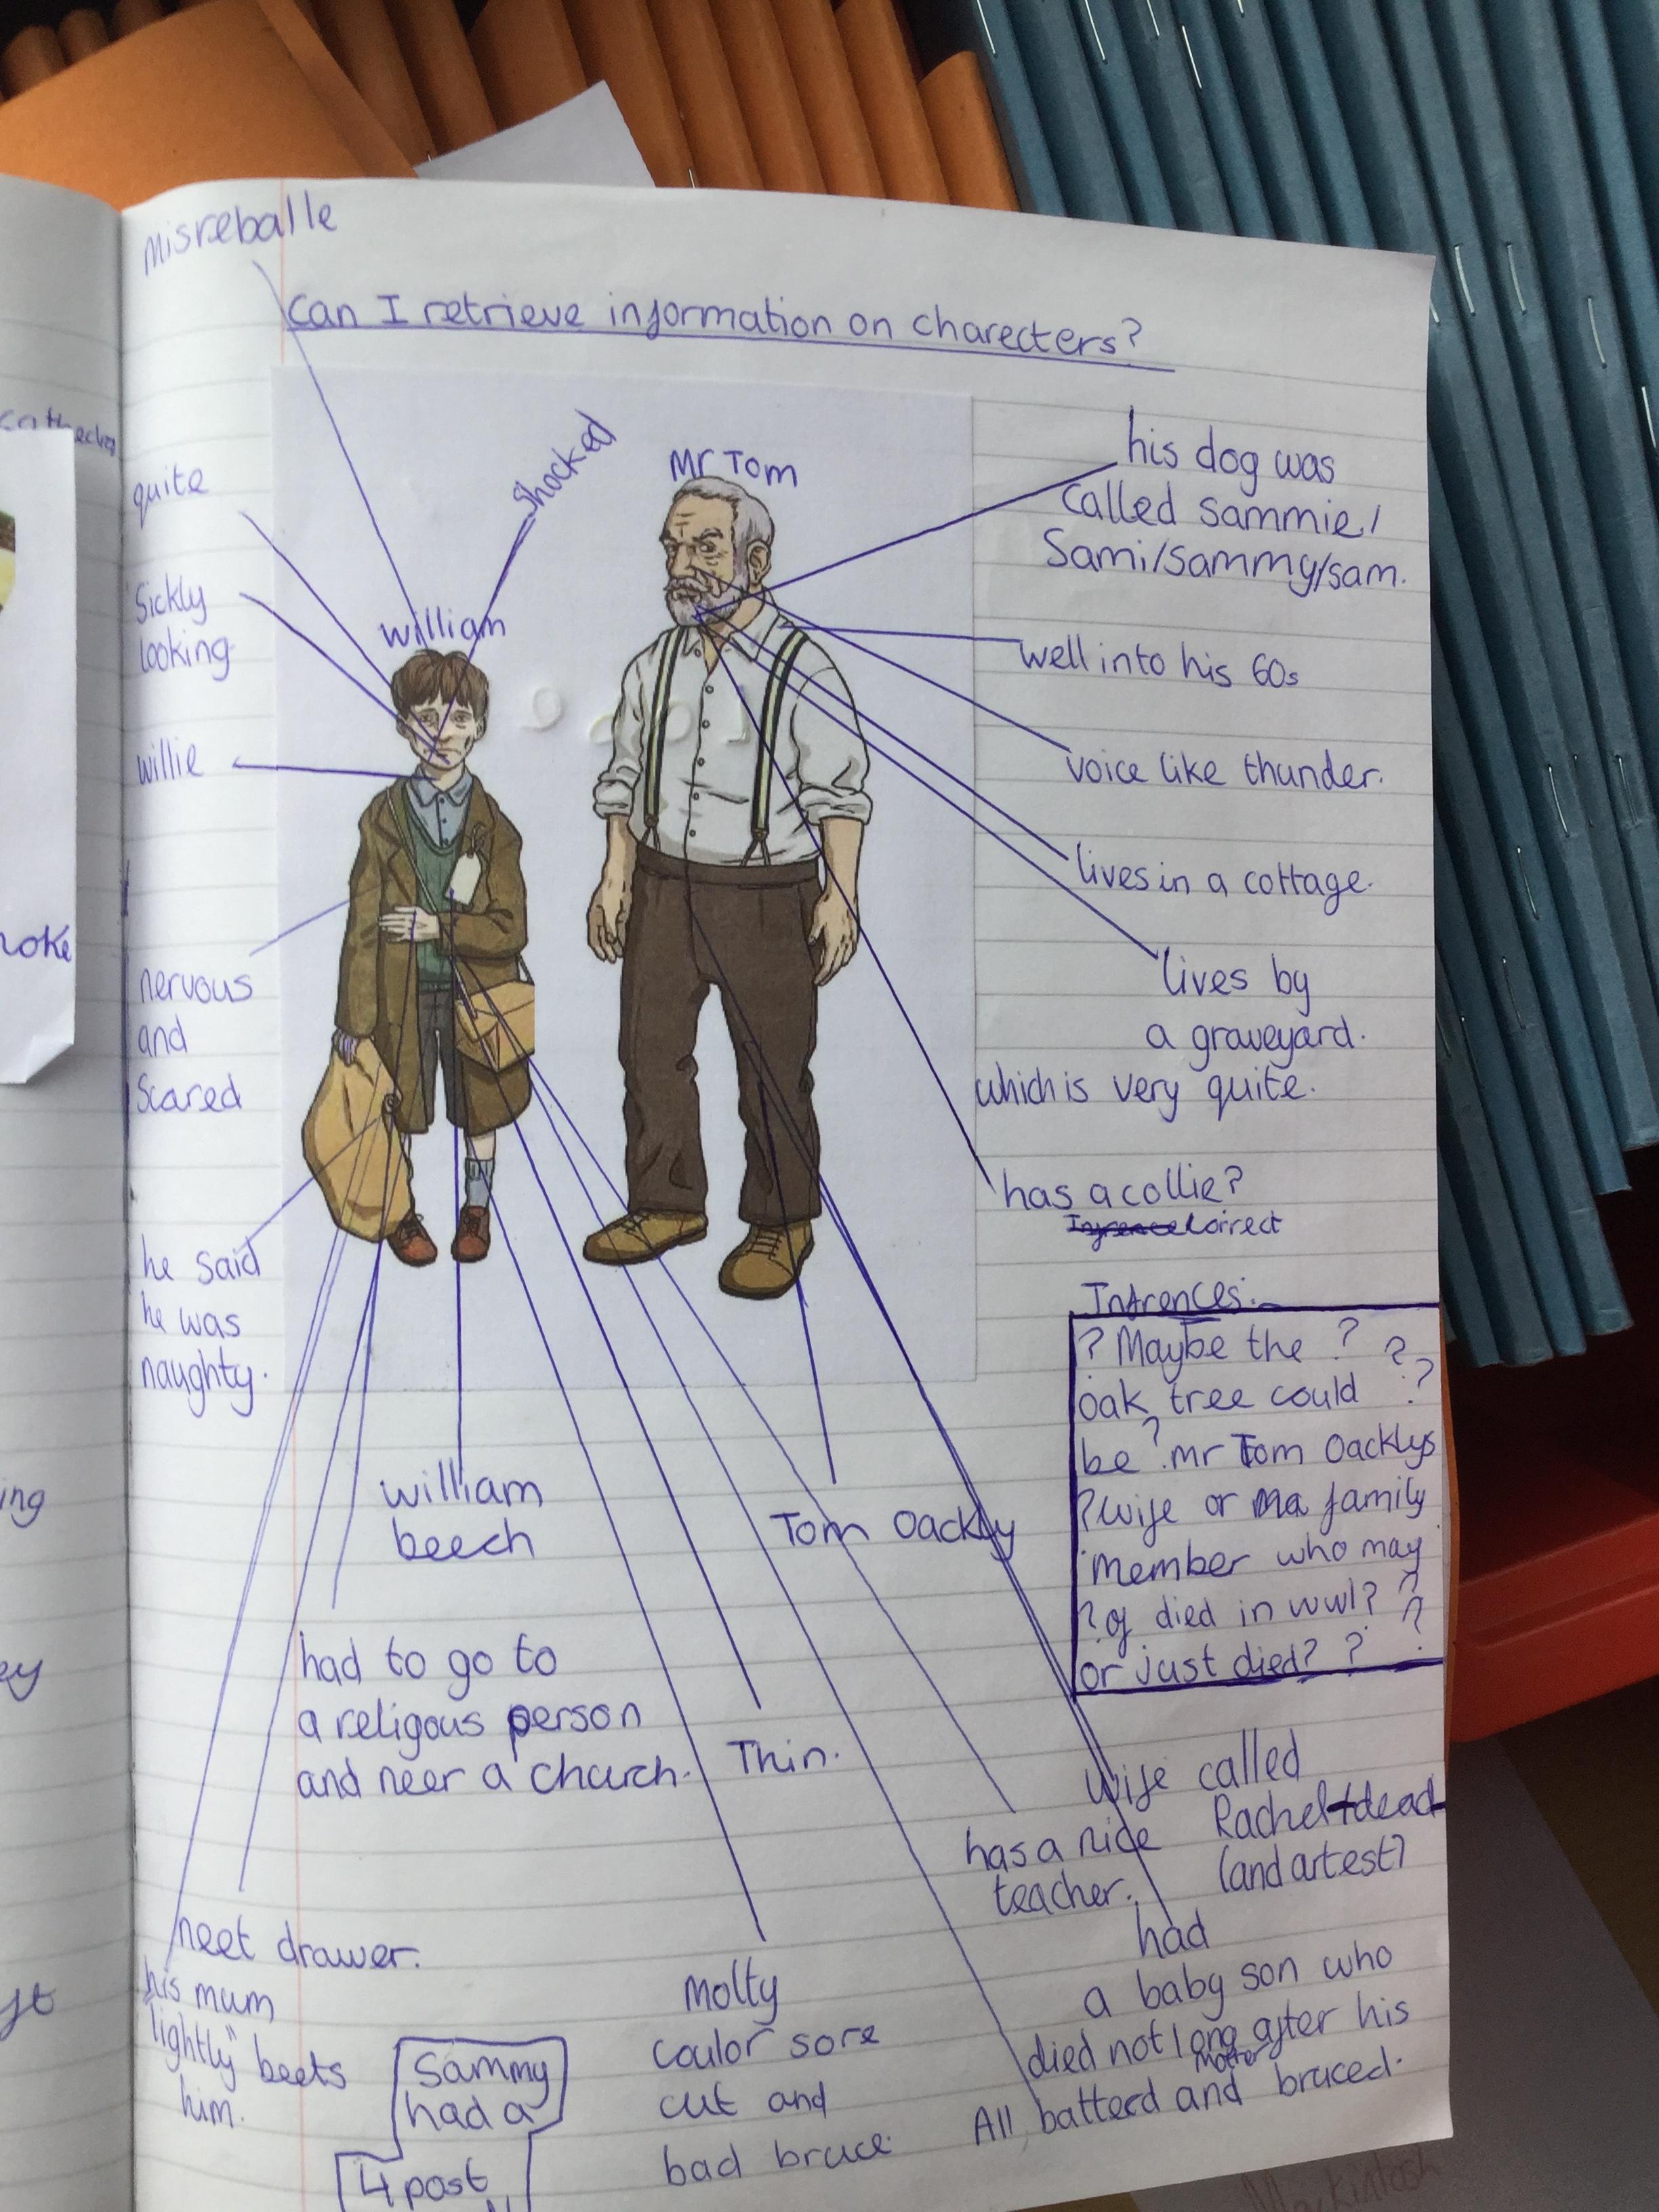 misreballe
Can I retrieve information on charecters?
quite
Shocked
Mr Tom
his dog was
called sammie/
Sami/sammy/sam.
Sickly
looking
william
well into his 60s
willie
voice like thunder.
lives in a cottage.
nervous
and
Scared
lives by
a graveyard.
which is very quite.
has a collie?
correct
he said
he was
naughty.
Infrences:
? Maybe the ? ?
oak tree could ?
be ? mr Tom Oacklys
? wife or a family
member who may
? of died in ww1? ?
or just died? ? ?
william
beech
Tom Oackly
had to go to
a religous person
and neer a church.
Thin.
wife called
Rachel + dead
(and artest)
has a nice
teacher.
neet drawer.
his mum
"lightly" beets
him.
Sammy
had a
4 post
Molty
coulor sore
cut and
bad bruce
had
a baby son who
died not long after his
mother
All batterd and bruced.
ing
ey
noke